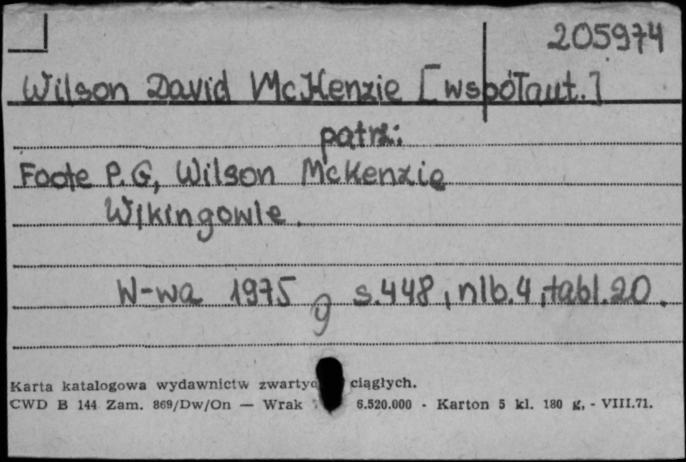 205974
Wilson David McKenzie [współaut.]
patrz:
Foote P.G, Wilson McKenzie
Wikingowie.
W-wa 1975 g s.448, nlb.4, tabl.20.
Karta katalogowa wydawnictw ciągłych.
CWD B 144 Zam. 869/Dw/On — Wrak 6.520.000 - Karton 5 kl. 180 g, - VIII.71.